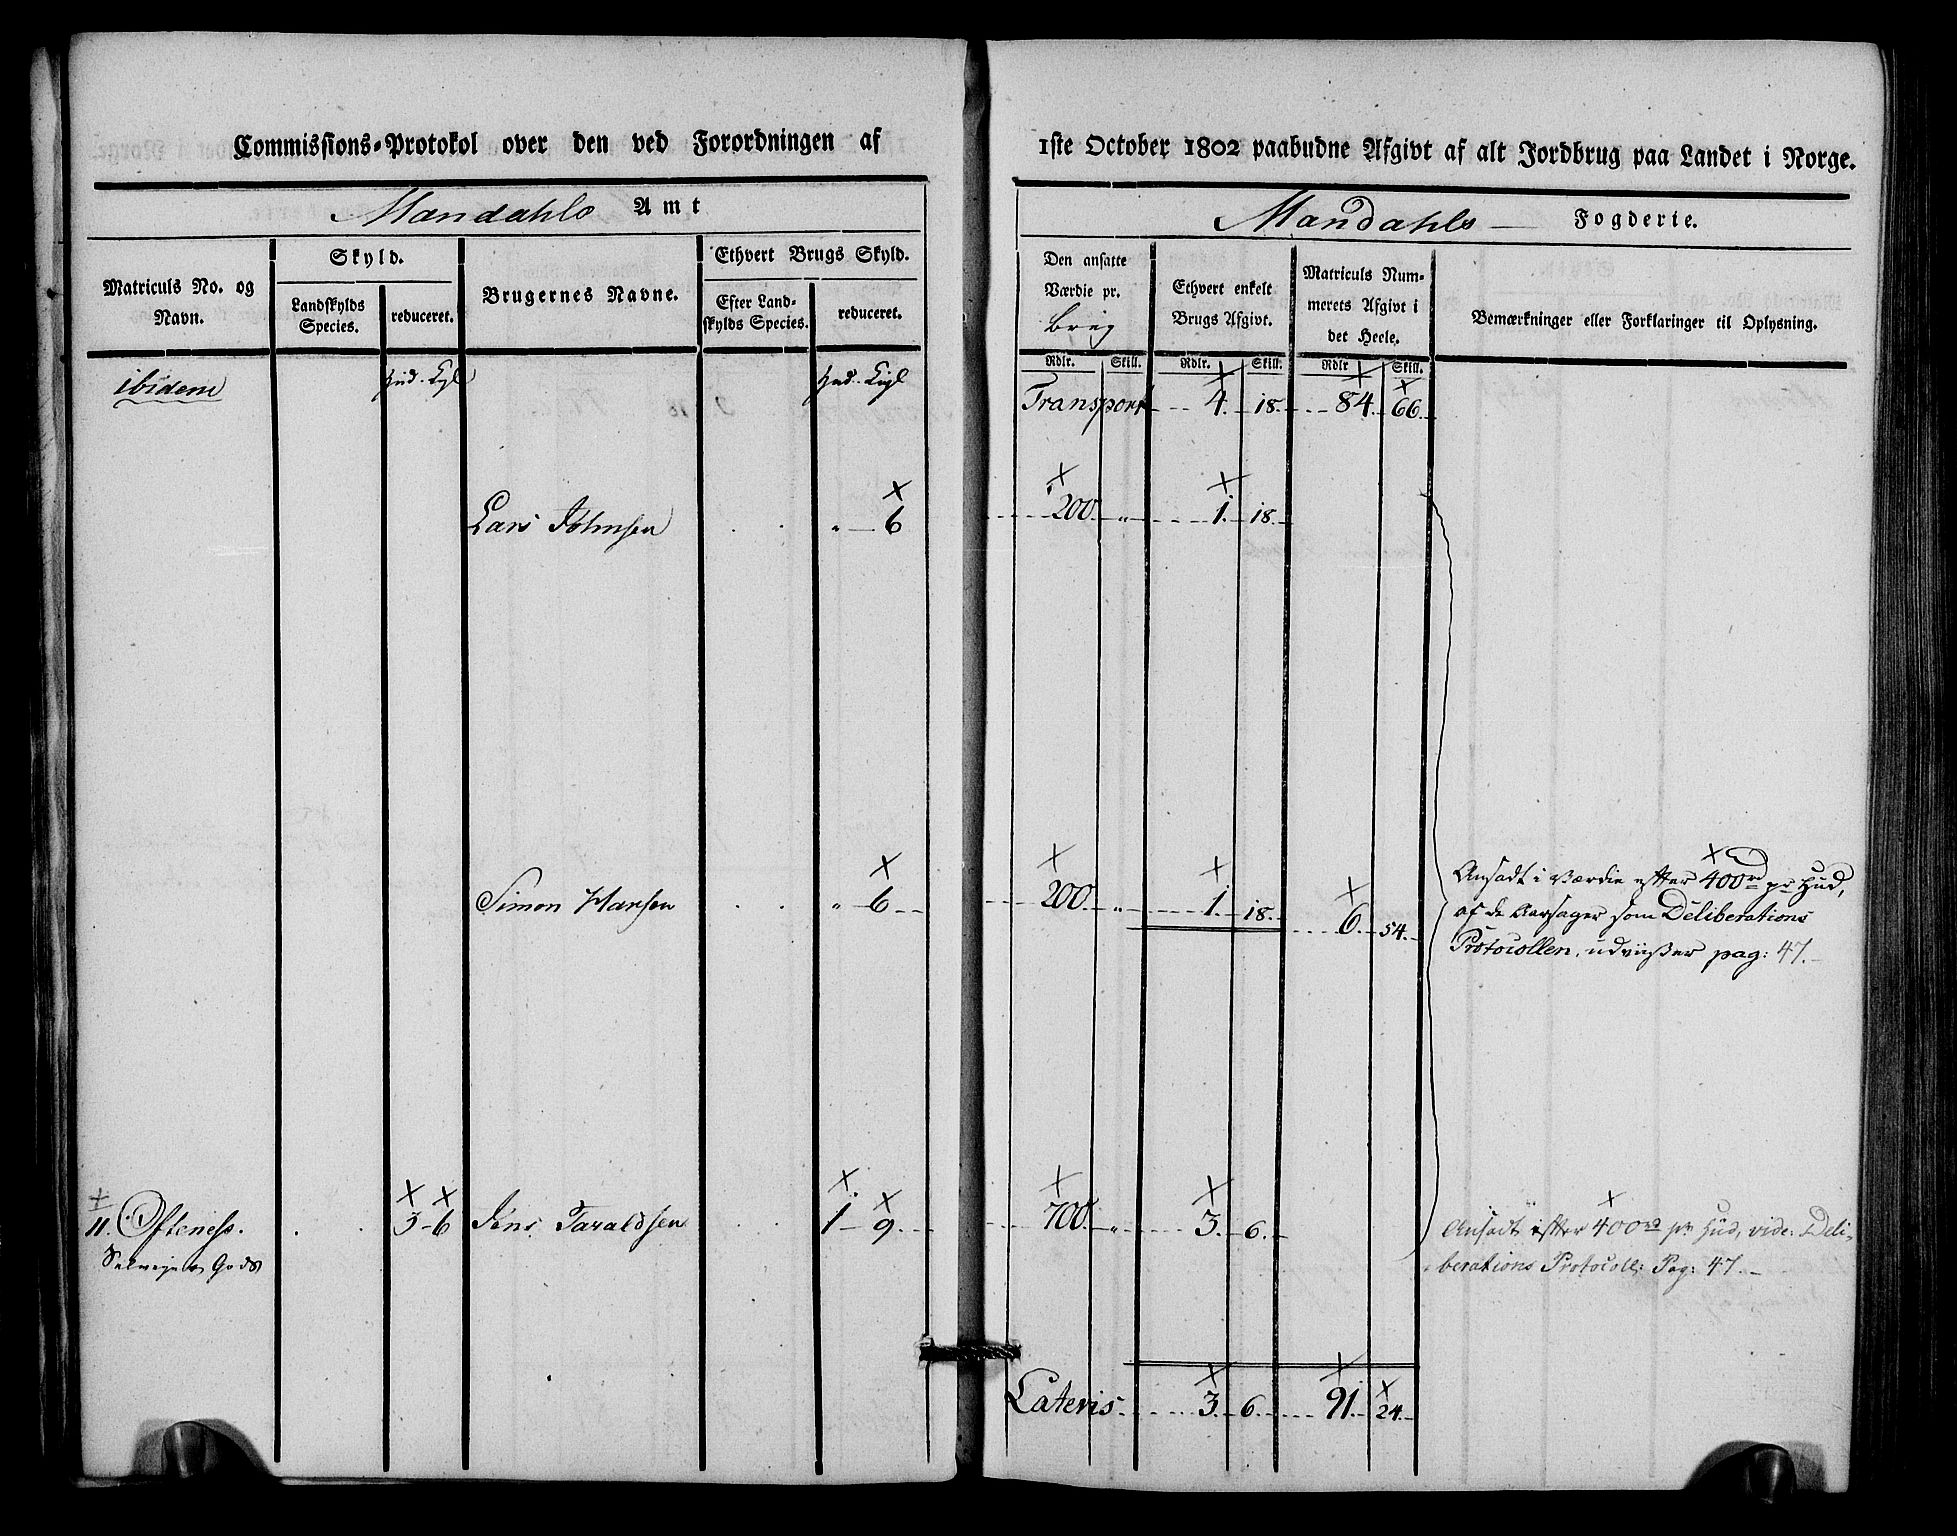 Commissions-Protokol over den ved Forordningen af
Mandahls Amt
Matriculs No. og Navn.
Skyld.
Landskylds Species.
reduceret.
Brugernes Navne.
Ethvert Brugs Skyld.
Efter Landskylds Species.
reduceret.
ibidem
Hud. Kgl
Hud. Kugl
Lars Johnsen " 6
Simon Hansen " 6
11. Ofteness. 3 - 6 Jens Taraldsen 1 - 9
Selveier Gods
1ste October 1802 paabudne Afgivt af alt Jordbrug paa Landet i Norge.
Mandahls Fogderie.
Den ansatte Værdie pr. brug
Ethvert enkelt Brugs Afgivt.
Matriculs Nummerets Afgivt i det Heele.
Bemærkninger eller Forklaringer til Oplysning.
Rdlr. Skill. Rdlr. Skill. Rdlr Skill.
Transport 4. 18. 84. 66.
200. " 1. 18.
200. " 1. 18. 6. 54.
Ansadt i Værdie efter 400rd pr Hud,
af de Aarsager som Deliberations
Protocollen, udviißer pag: 47.
700. " 3. 6.
Ansadt efter 400rd pr Hud, vide: Deli-
berations Protocoll: Pag: 47.
Lateris 3. 6. 91. 24.